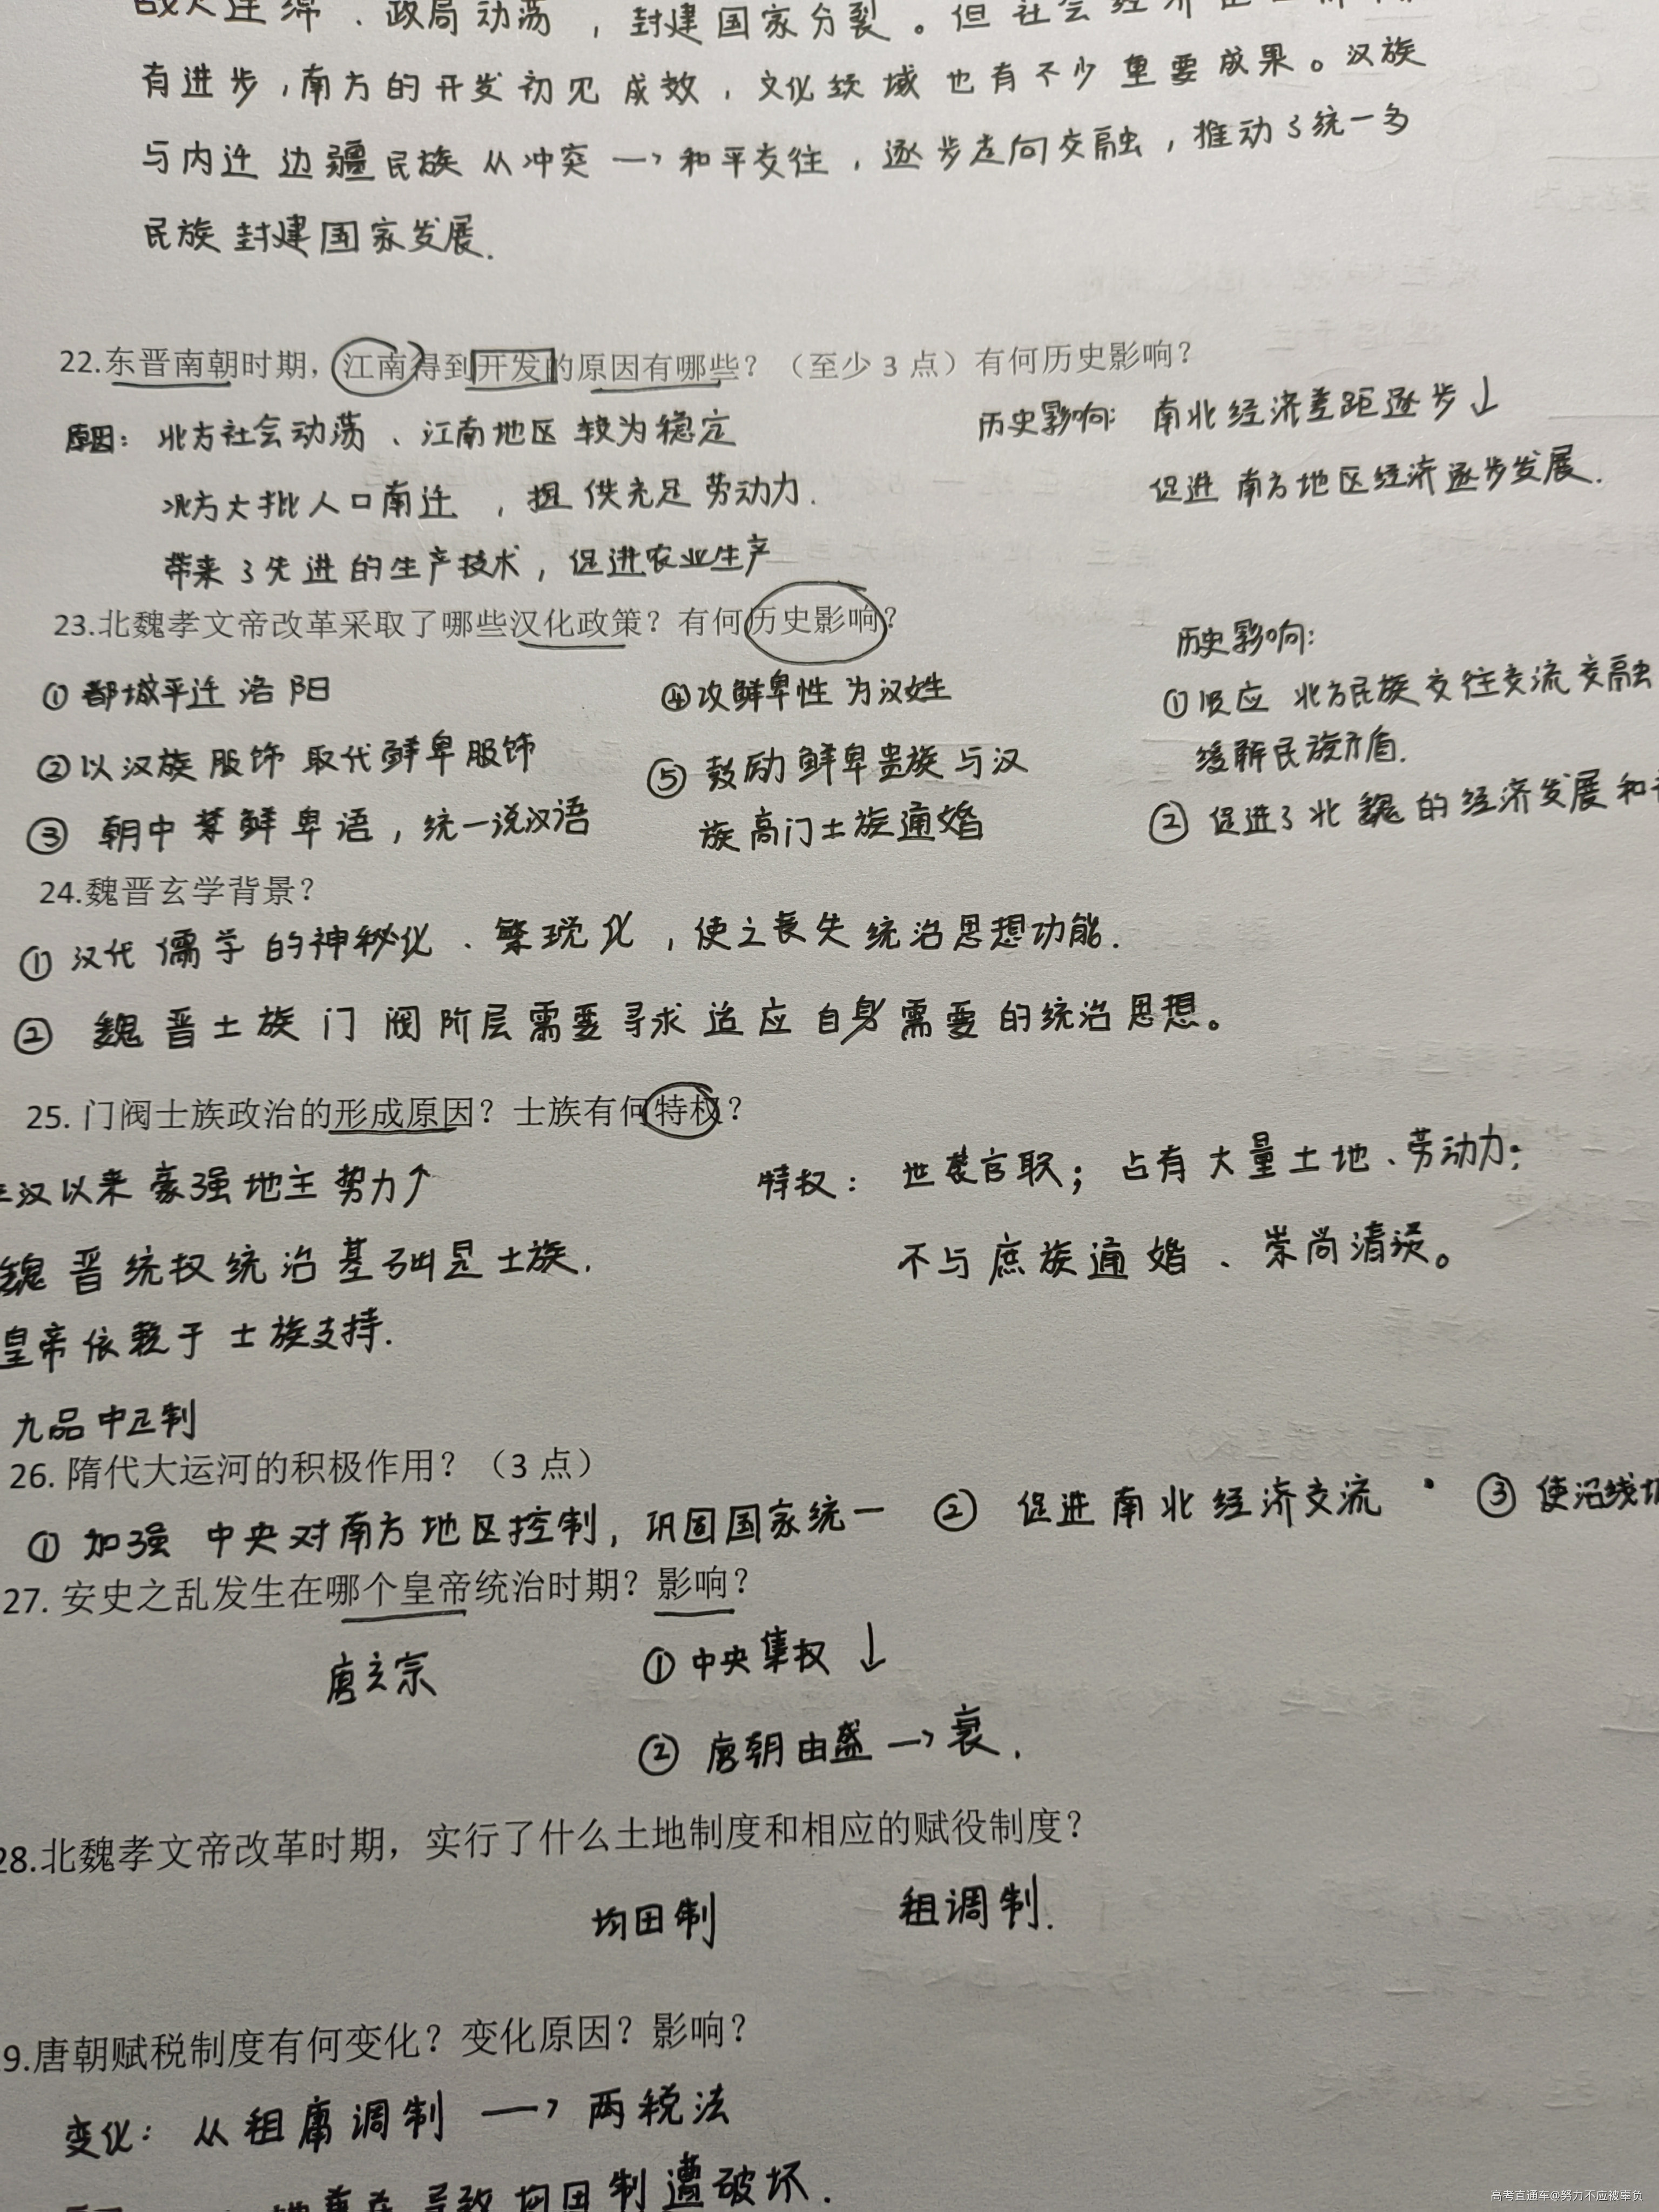 战火连绵、政局动荡，封建国家分裂。但社会经济
有进步，南方的开发初见成效，文化领域也有不少重要成果。汉族
与内迁边疆民族从冲突→和平交往，逐步走向交融，推动了统一多
民族封建国家发展.
22.东晋南朝时期，江南得到开发的原因有哪些？（至少3点）有何历史影响？
原因：北方社会动荡、江南地区较为稳定
北方大批人口南迁，提供充足劳动力.
带来了先进的生产技术，促进农业生产
历史影响：南北经济差距逐步↓
促进南方地区经济逐步发展.
23.北魏孝文帝改革采取了哪些汉化政策？有何历史影响？
①都城平迁洛阳
②以汉族服饰取代鲜卑服饰
③朝中禁鲜卑语，统一说汉语
④改鲜卑性为汉姓
⑤鼓励鲜卑贵族与汉
族高门士族通婚
历史影响：
①顺应北方民族交往交流交融
缓解民族矛盾.
②促进了北魏的经济发展和
24.魏晋玄学背景？
①汉代儒学的神秘化、繁琐化，使之丧失统治思想功能.
②魏晋士族门阀阶层需要寻求适应自身需要的统治思想。
25.门阀士族政治的形成原因？士族有何特权？
汉以来豪强地主势力↑
魏晋统权统治基础是士族.
皇帝依赖于士族支持.
九品中正制
特权：世袭官职；占有大量土地、劳动力；
不与庶族通婚、崇尚清谈。
26.隋代大运河的积极作用？（3点）
①加强中央对南方地区控制，巩固国家统一 ②促进南北经济交流 · ③使沿线
27.安史之乱发生在哪个皇帝统治时期？影响？
唐玄宗
①中央集权↓
②唐朝由盛→衰.
28.北魏孝文帝改革时期，实行了什么土地制度和相应的赋役制度？
均田制 租调制.
9.唐朝赋税制度有何变化？变化原因？影响？
变化：从租庸调制→两税法
导致均田制遭破坏.
高考直通车@努力不应被辜负